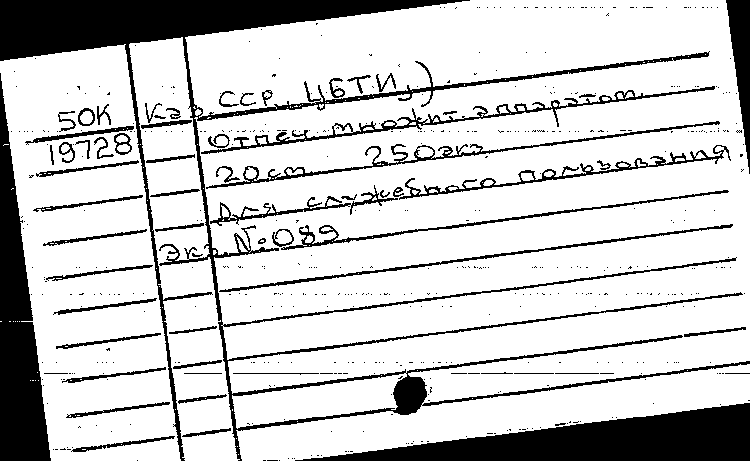 50К Каз. ССР, ЦБТИ,)
19728 Отпеч. множит. аппаратом.
20cm 250экз
Для служебного пользования.
Экз. №089